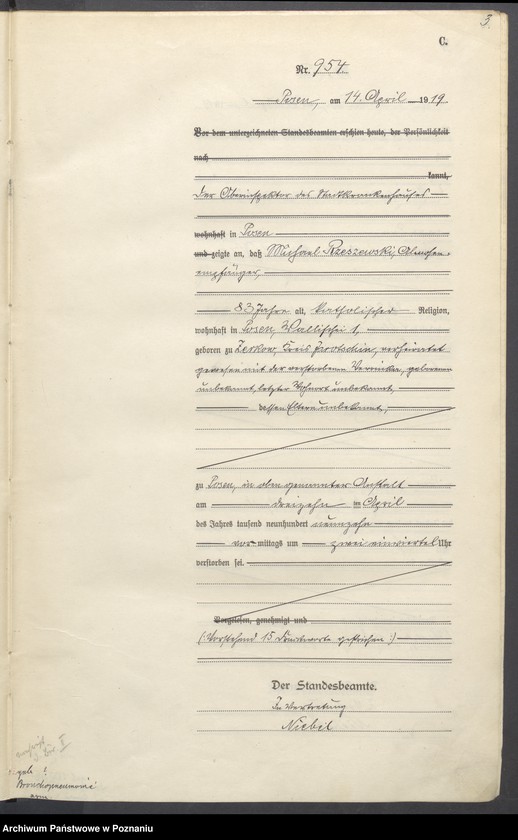 3.
C.
Nr. 954
Posen, am 14. April 1919.
Vor dem unterzeichneten Standesbeamten erschien heute, der Persönlichkeit
nach
kannt,
Der Oberinspektor des Stadtkrankenhauses
wohnhaft in Posen
und zeigte an, daß Michael Rzeszewski, Almosen-
empfänger,
83 Jahre alt, katholischer Religion,
wohnhaft in Posen, Wallischei 1,
geboren zu Zerkow, Kreis Jarotschin, verheiratet
gewesen mit der verstorbenen Veronika, geborenen
unbekannt, letzter Wohnort unbekannt,
dessen Eltern unbekannt,
zu Posen, in oben genannter Anstalt
am dreizehn ten April
des Jahres tausend neunhundert neunzehn
vor mittags um zwei einviertel Uhr
verstorben sei.
Vorgelesen, genehmigt und
(: Vorstehend 15 Druckworte gestrichen :)
Der Standesbeamte.
In Vertretung
Bronchopneumonie
Archiwum Państwowe w Poznaniu